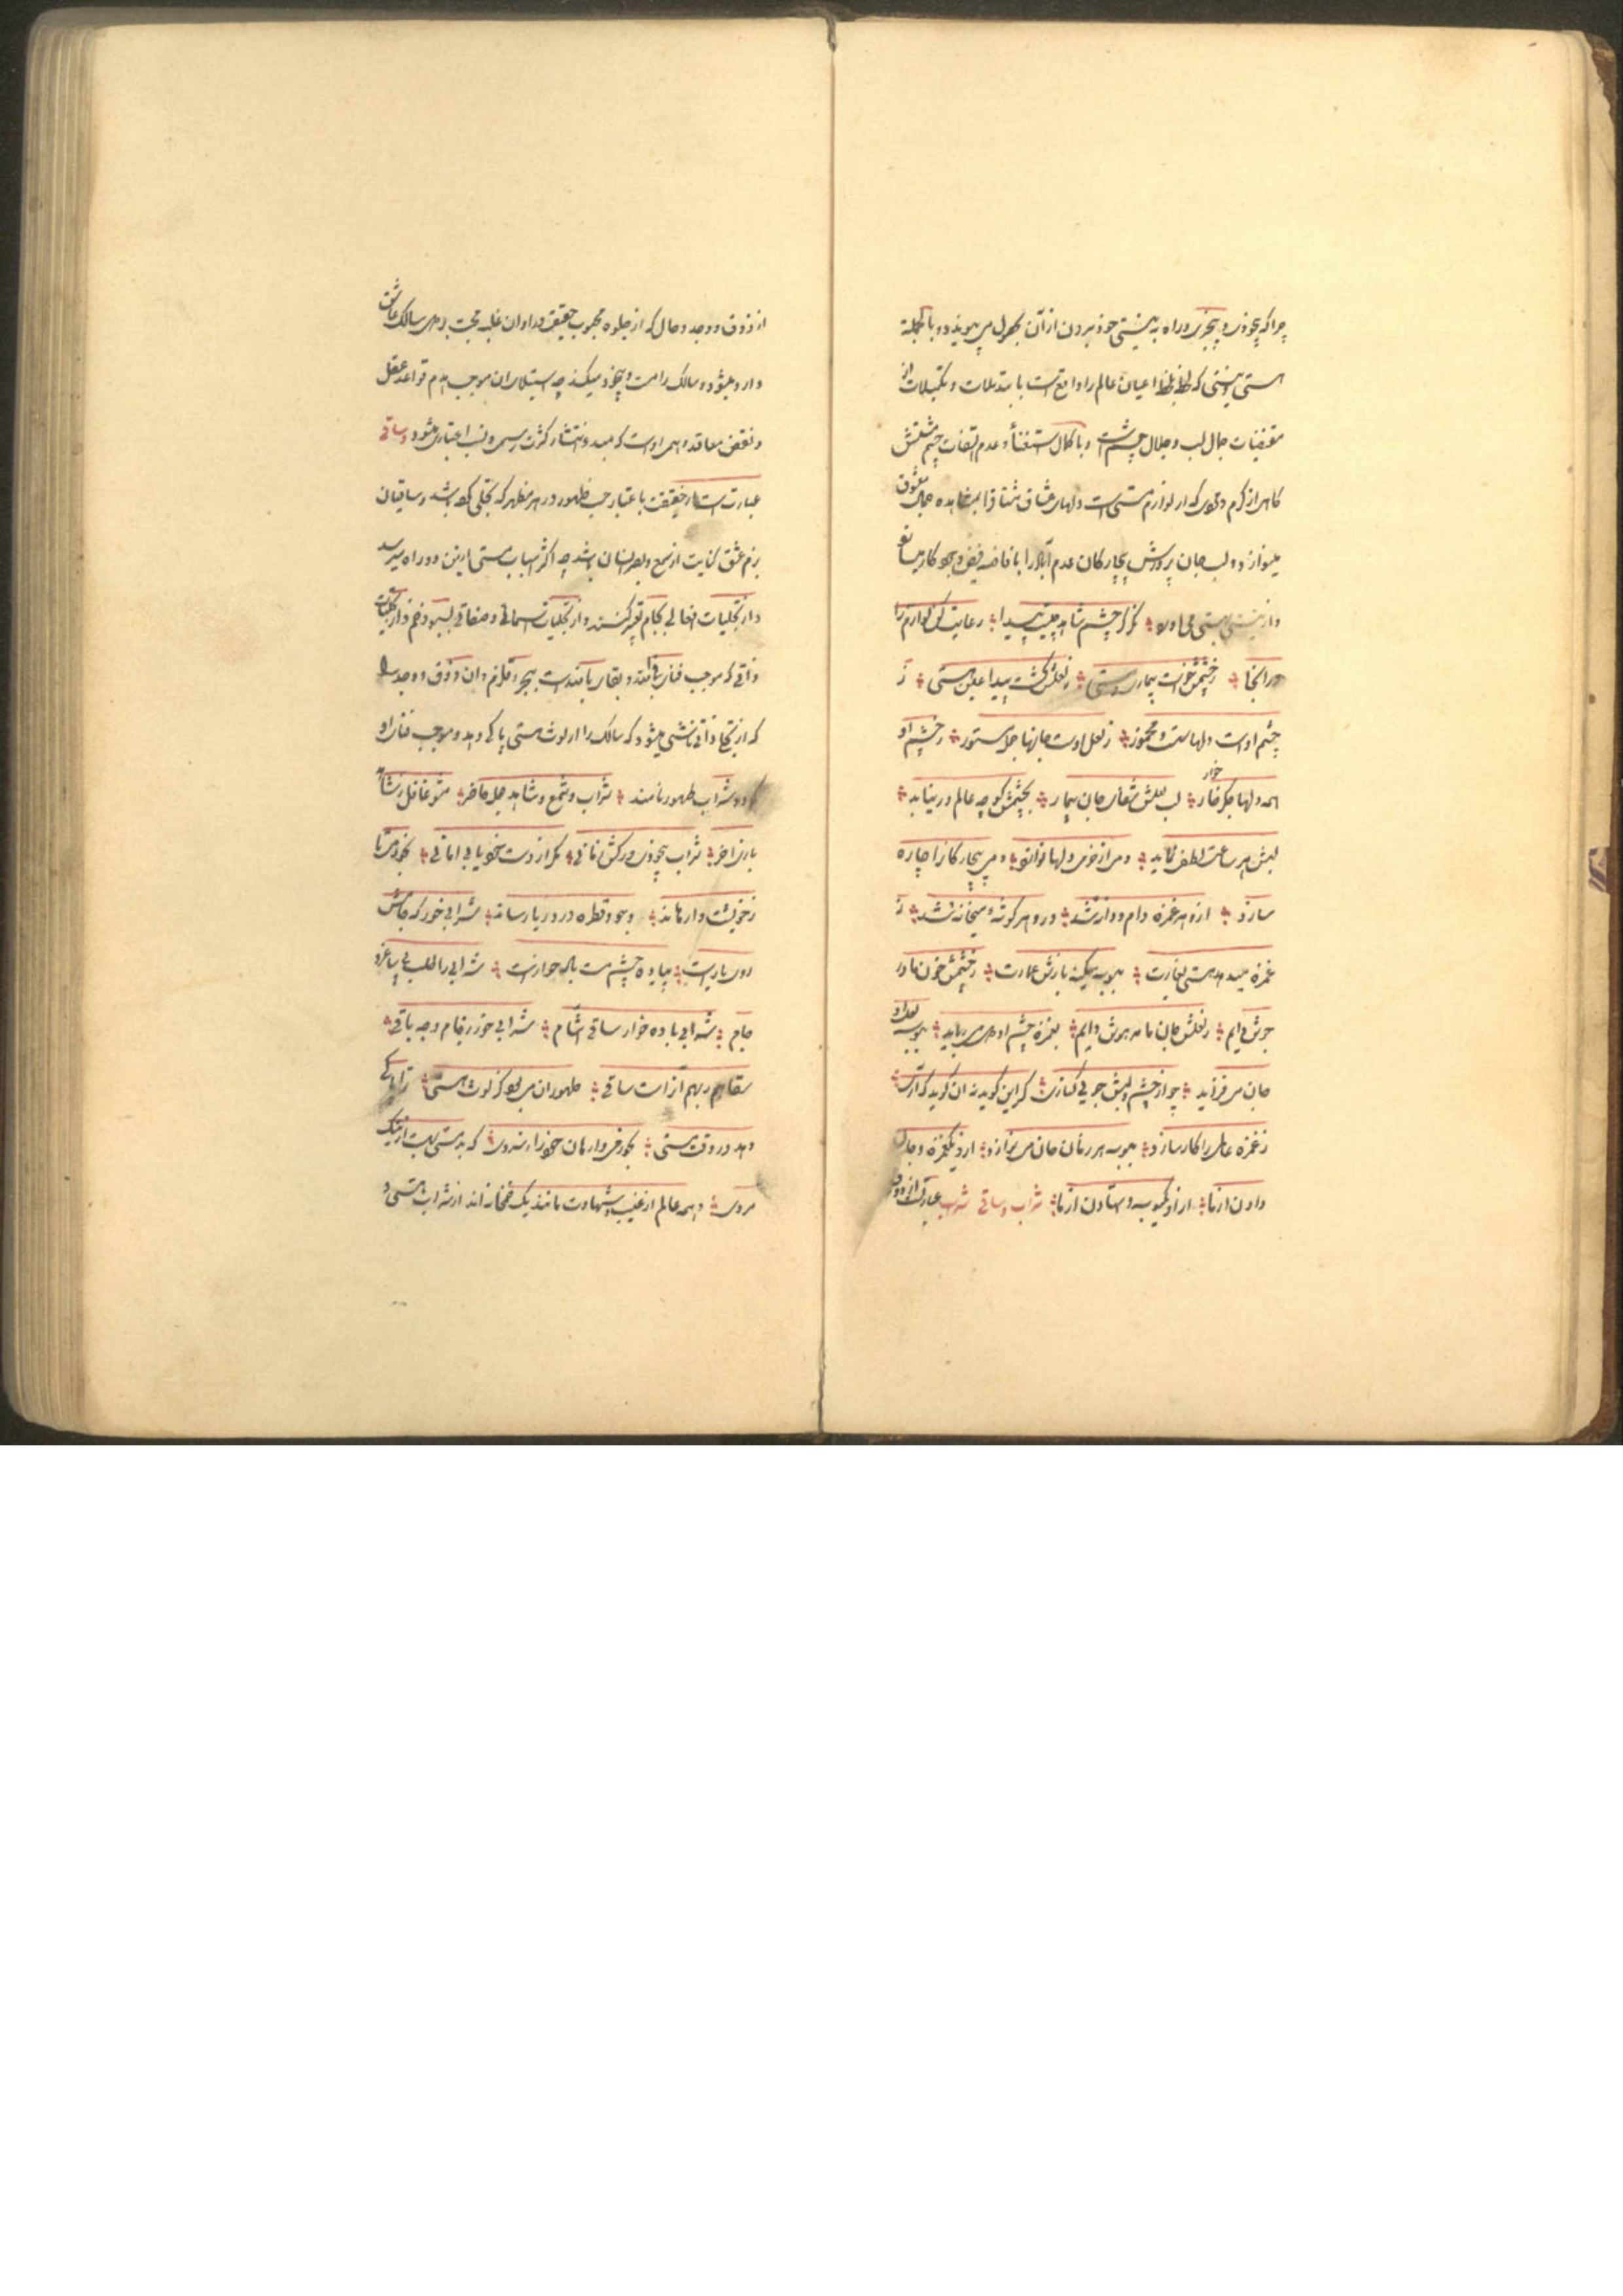 چرا که بیخودی و بیخبری و راه به نیستی خود بردن از آن بحصول می پیوندد و بالجمله
هستی و نیستی که لحظه لحظه اعیان عالم را واقع است با تبدلات و تکمیلات از
مقتضیات جمال لب و جلال چشم است و با کمال استغنا و عدم التفات چشم مستش
گاهی از کرم و مردمی که از لوازم مستی است دلهای عشاق مشتاق را بمشاهده جمال معشوق
مینوازد و لب جان پرورش بیچارگان عدم آباد را بافاضه فیض وجود کار میسازد
و از نیستی بهستی می آورد نگر کز چشم شاهد چیست پیدا رعایت کن لوازم را
در آنجا ز چشمش خاست بیماری و مستی ز لعلش گشت پیدا عین هستی ز
چشم اوست دلها مست و مخمور ز لعل اوست جانها جمله مستور ز چشم او
همه دلها جگر خوار لب لعلش شفای جان بیمار بچشمش گرچه عالم در نیاید
لبش هر ساعت لطف نماید دمی از مردمی دلها نوازد دمی بیچارگانرا چاره
سازد ازو هر غمزه دام و دانه شد وزو هر گوشه میخانه شد ز
غمزه میدهد هستی بغارت ببوسه میکند بازش عمارت ز چشمش خون ما در
جوش دایم ز لعلش جان ما مدهوش دایم بغمزه چشم او دل می رباید ببوسه لعل او
جان می فزاید چو از چشم و لبش جویی کناری کر این گوید نه آن گوید که آری
ز غمزه عالمی را کار سازد ببوسه هر زمان جان می نوازد ازو یک غمزه و جان
دادن از ما ازو یک بوسه و استادن از ما شراب و ساقی شراب عبارتست از ذوق
از ذوق و وجد و حال که از جلوه محبوب حقیقی در اوان غلبه محبت بر دل سالک عاشق
وارد میشود و سالک را مست و بیخود میکند چه استیلای آن موجب هدم قواعد عقل
و نقض معاقد وهمی اوست که مبدء انتشار کثرت رسمی و نسب اعتباری میشود و ساقی
عبارت است از حقیقت باعتبار حب ظهور در هر مظهر که تجلی کرده باشد و ساقیان
بزم عشق کنایت از سمع و بصر انسان باشد چه اکثر اسباب مستی ازین دو راه میرسد
و از تجلیات افعالی بجام تعبیر کنند و از تجلیات اسمائی و صفاتی بسبو و خم و از تجلیات
ذاتی که موجب فنای فی الله و بقای بالله است ببحر و قلزم و آن ذوق و وجد را
که از تجلی ذاتی ناشی میشود که سالک را از لوث هستی پاکی دهد و موجب فنای او
گردد شراب طهور نامند شراب و شمع و شاهد جمله حاضر مشو غافل ز شاهد
بازی آخر شراب بیخودی در کش زمانی مگر از دست خود یابی امانی بخور می تا
ز خویشت وارهاند وجود قطره در دریا رساند شرابی خور که جامش
روی یار است پیاله چشم مست باده خوار است شرابی را طلب بی ساغر و
جام شراب باده خوار ساقی آشام شرابی خور ز جام وجه باقی
سقاهم ربهم آنراست ساقی طهور آن می بود کز لوث هستی ترا پاکی
دهد در وقت مستی بخور می وارهان خود را ز سردی که بد مستی بهست از نیک
مردی و همه عالم از غیب و شهادت مانند یک خمخانه اند از شراب هستی و